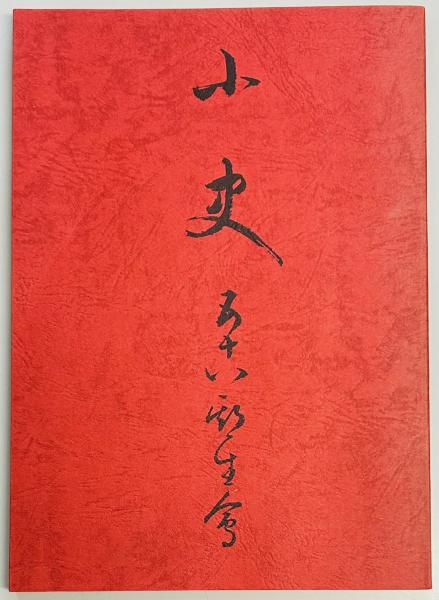 小史
五十八期生會